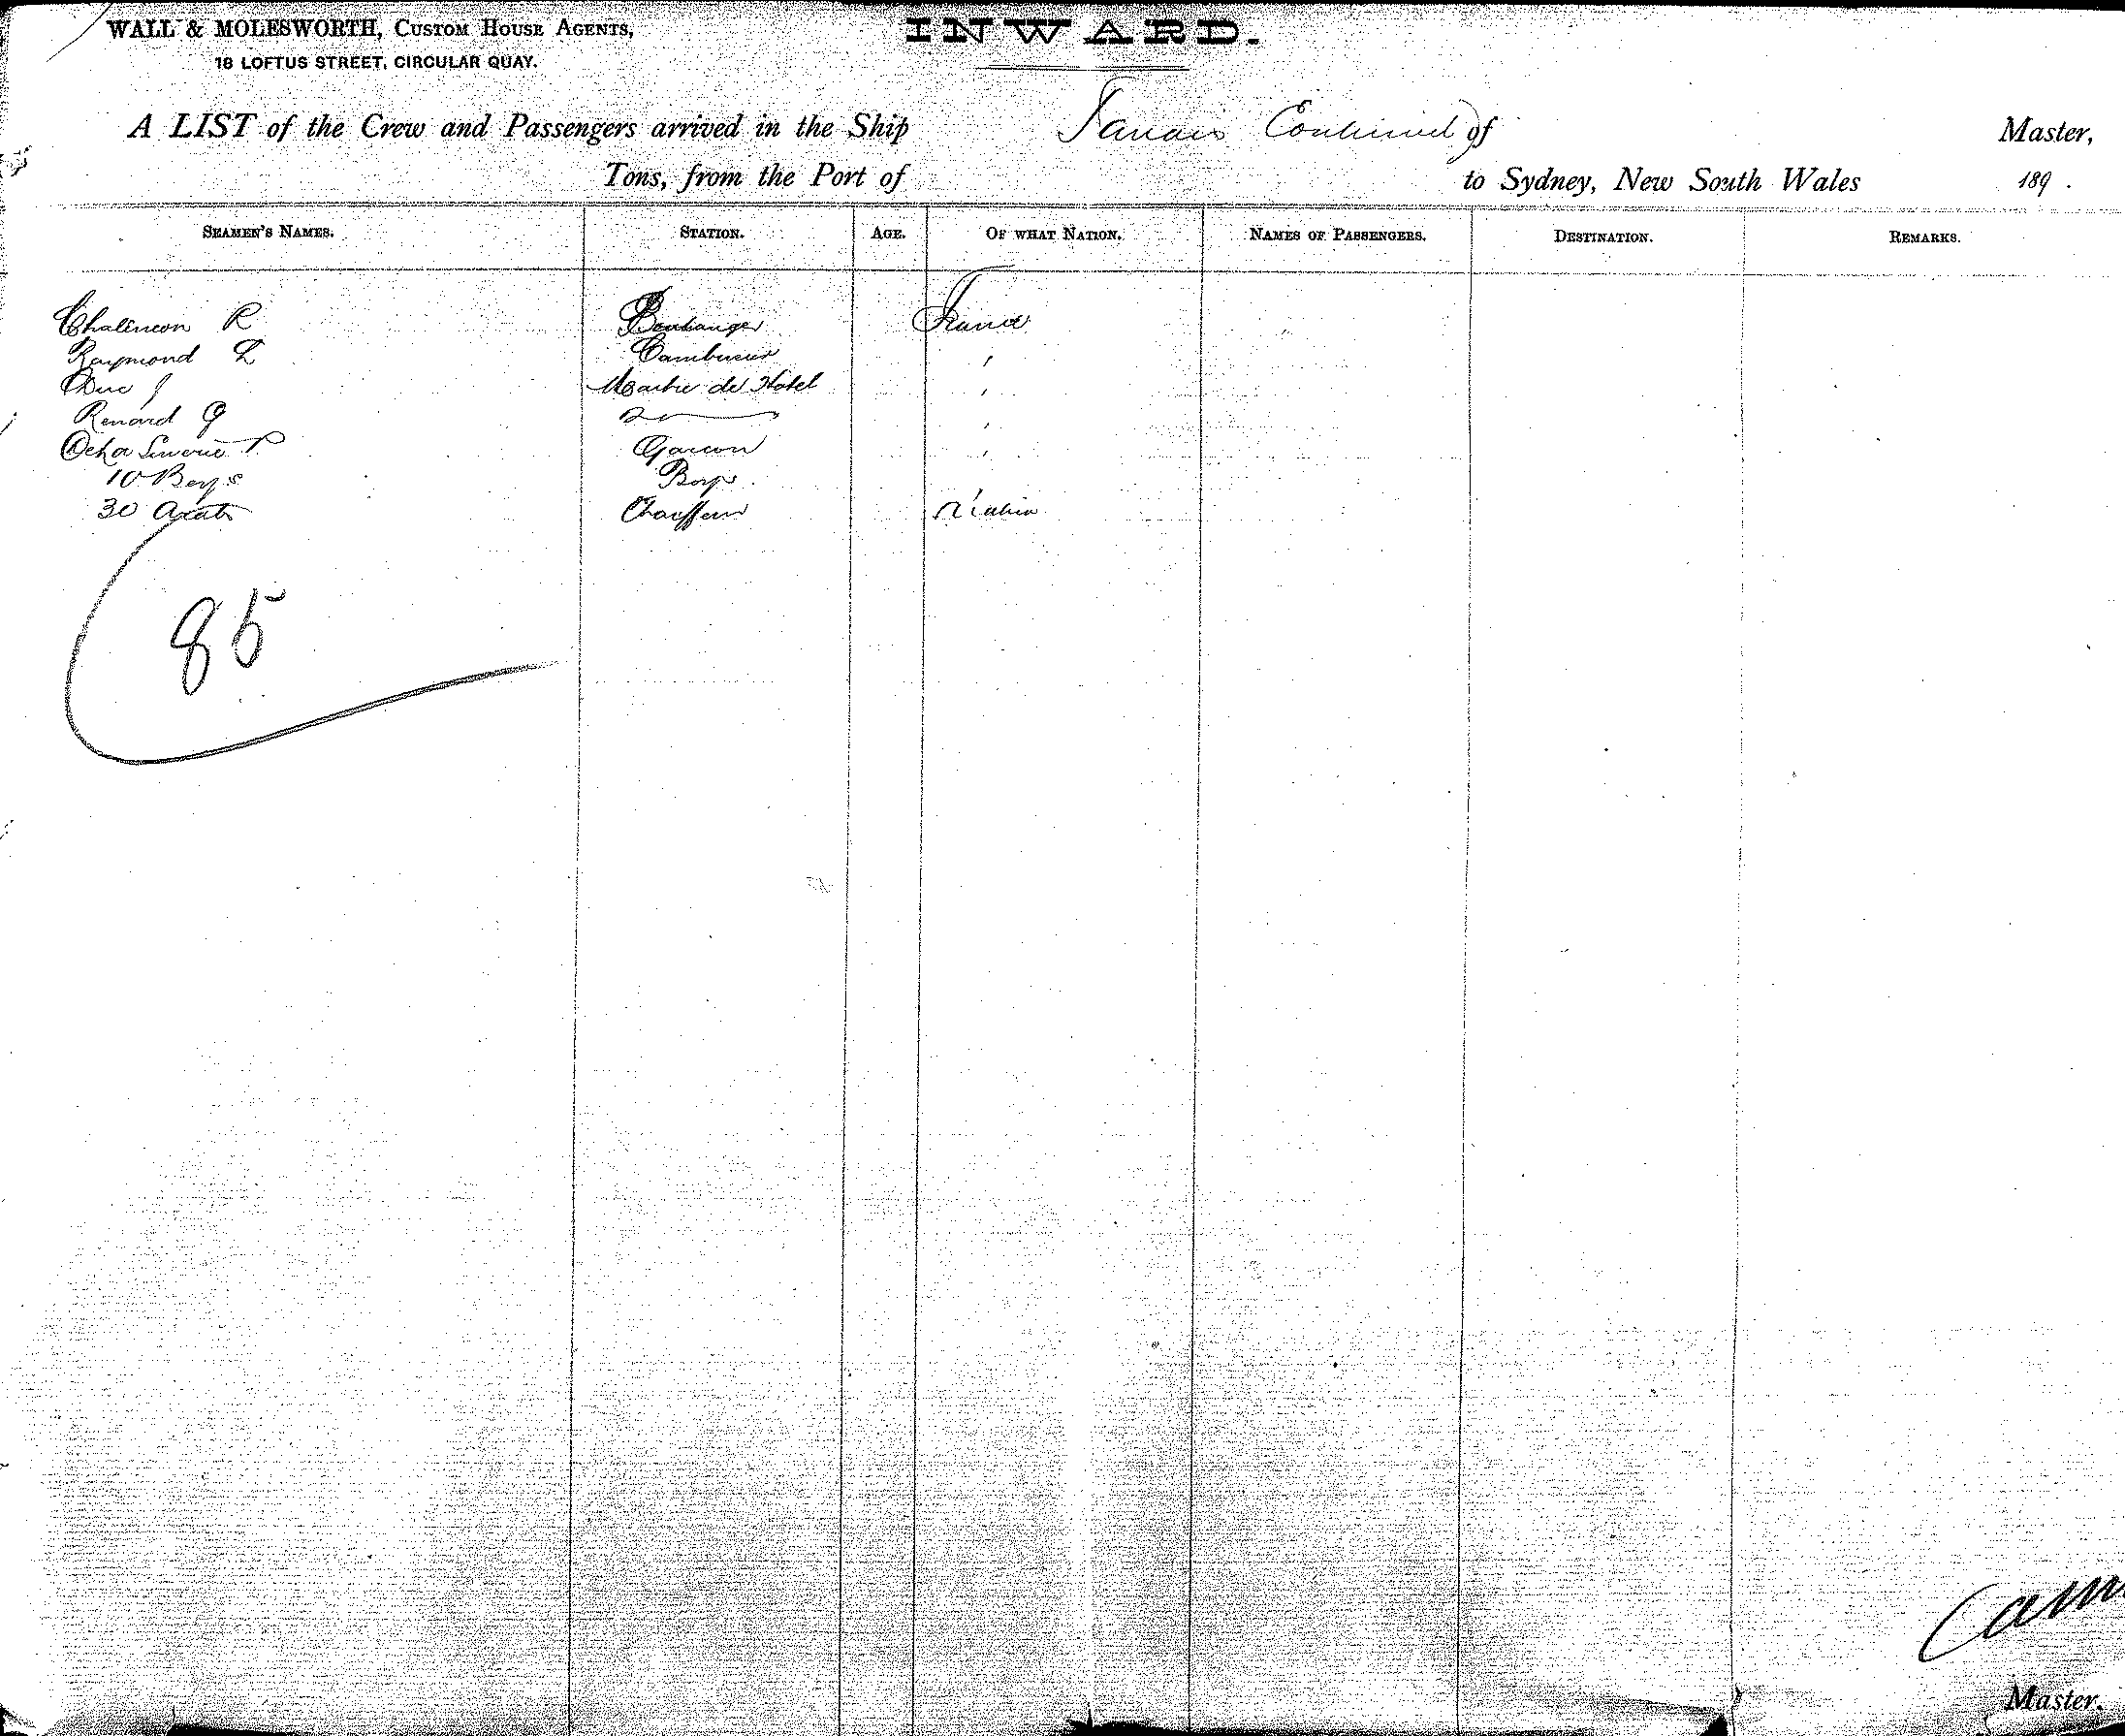 WALL & MOLESWORTH, CUSTOM HOUSE AGENTS,
18 LOFTUS STREET, CIRCULAR QUAY.
INWARD.
A LIST of the Crew and Passengers arrived in the Ship Tanais Continued of Master,
Tons, from the Port of to Sydney, New South Wales 189 .
SEAMEN'S NAMES. STATION. AGE. OF WHAT NATION. NAMES OF PASSENGERS. DESTINATION. REMARKS.
R Boulanger France
Raymond L Cambusier "
Duc J Maitre de Hotel "
Renard G Do "
P Garcon "
10 Boys Boys "
30 Arabs Chauffeur Arabia
85
Master.